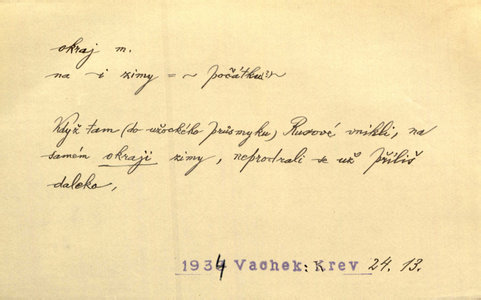 okraj m.
na ~i zimy = ~ počátku?)~
Když tam (do užockého průsmyku) Rusové vnikli, na
samém okraji zimy, neprodrali se už příliš
daleko,
1934 Vachek: Krev 24. 13.